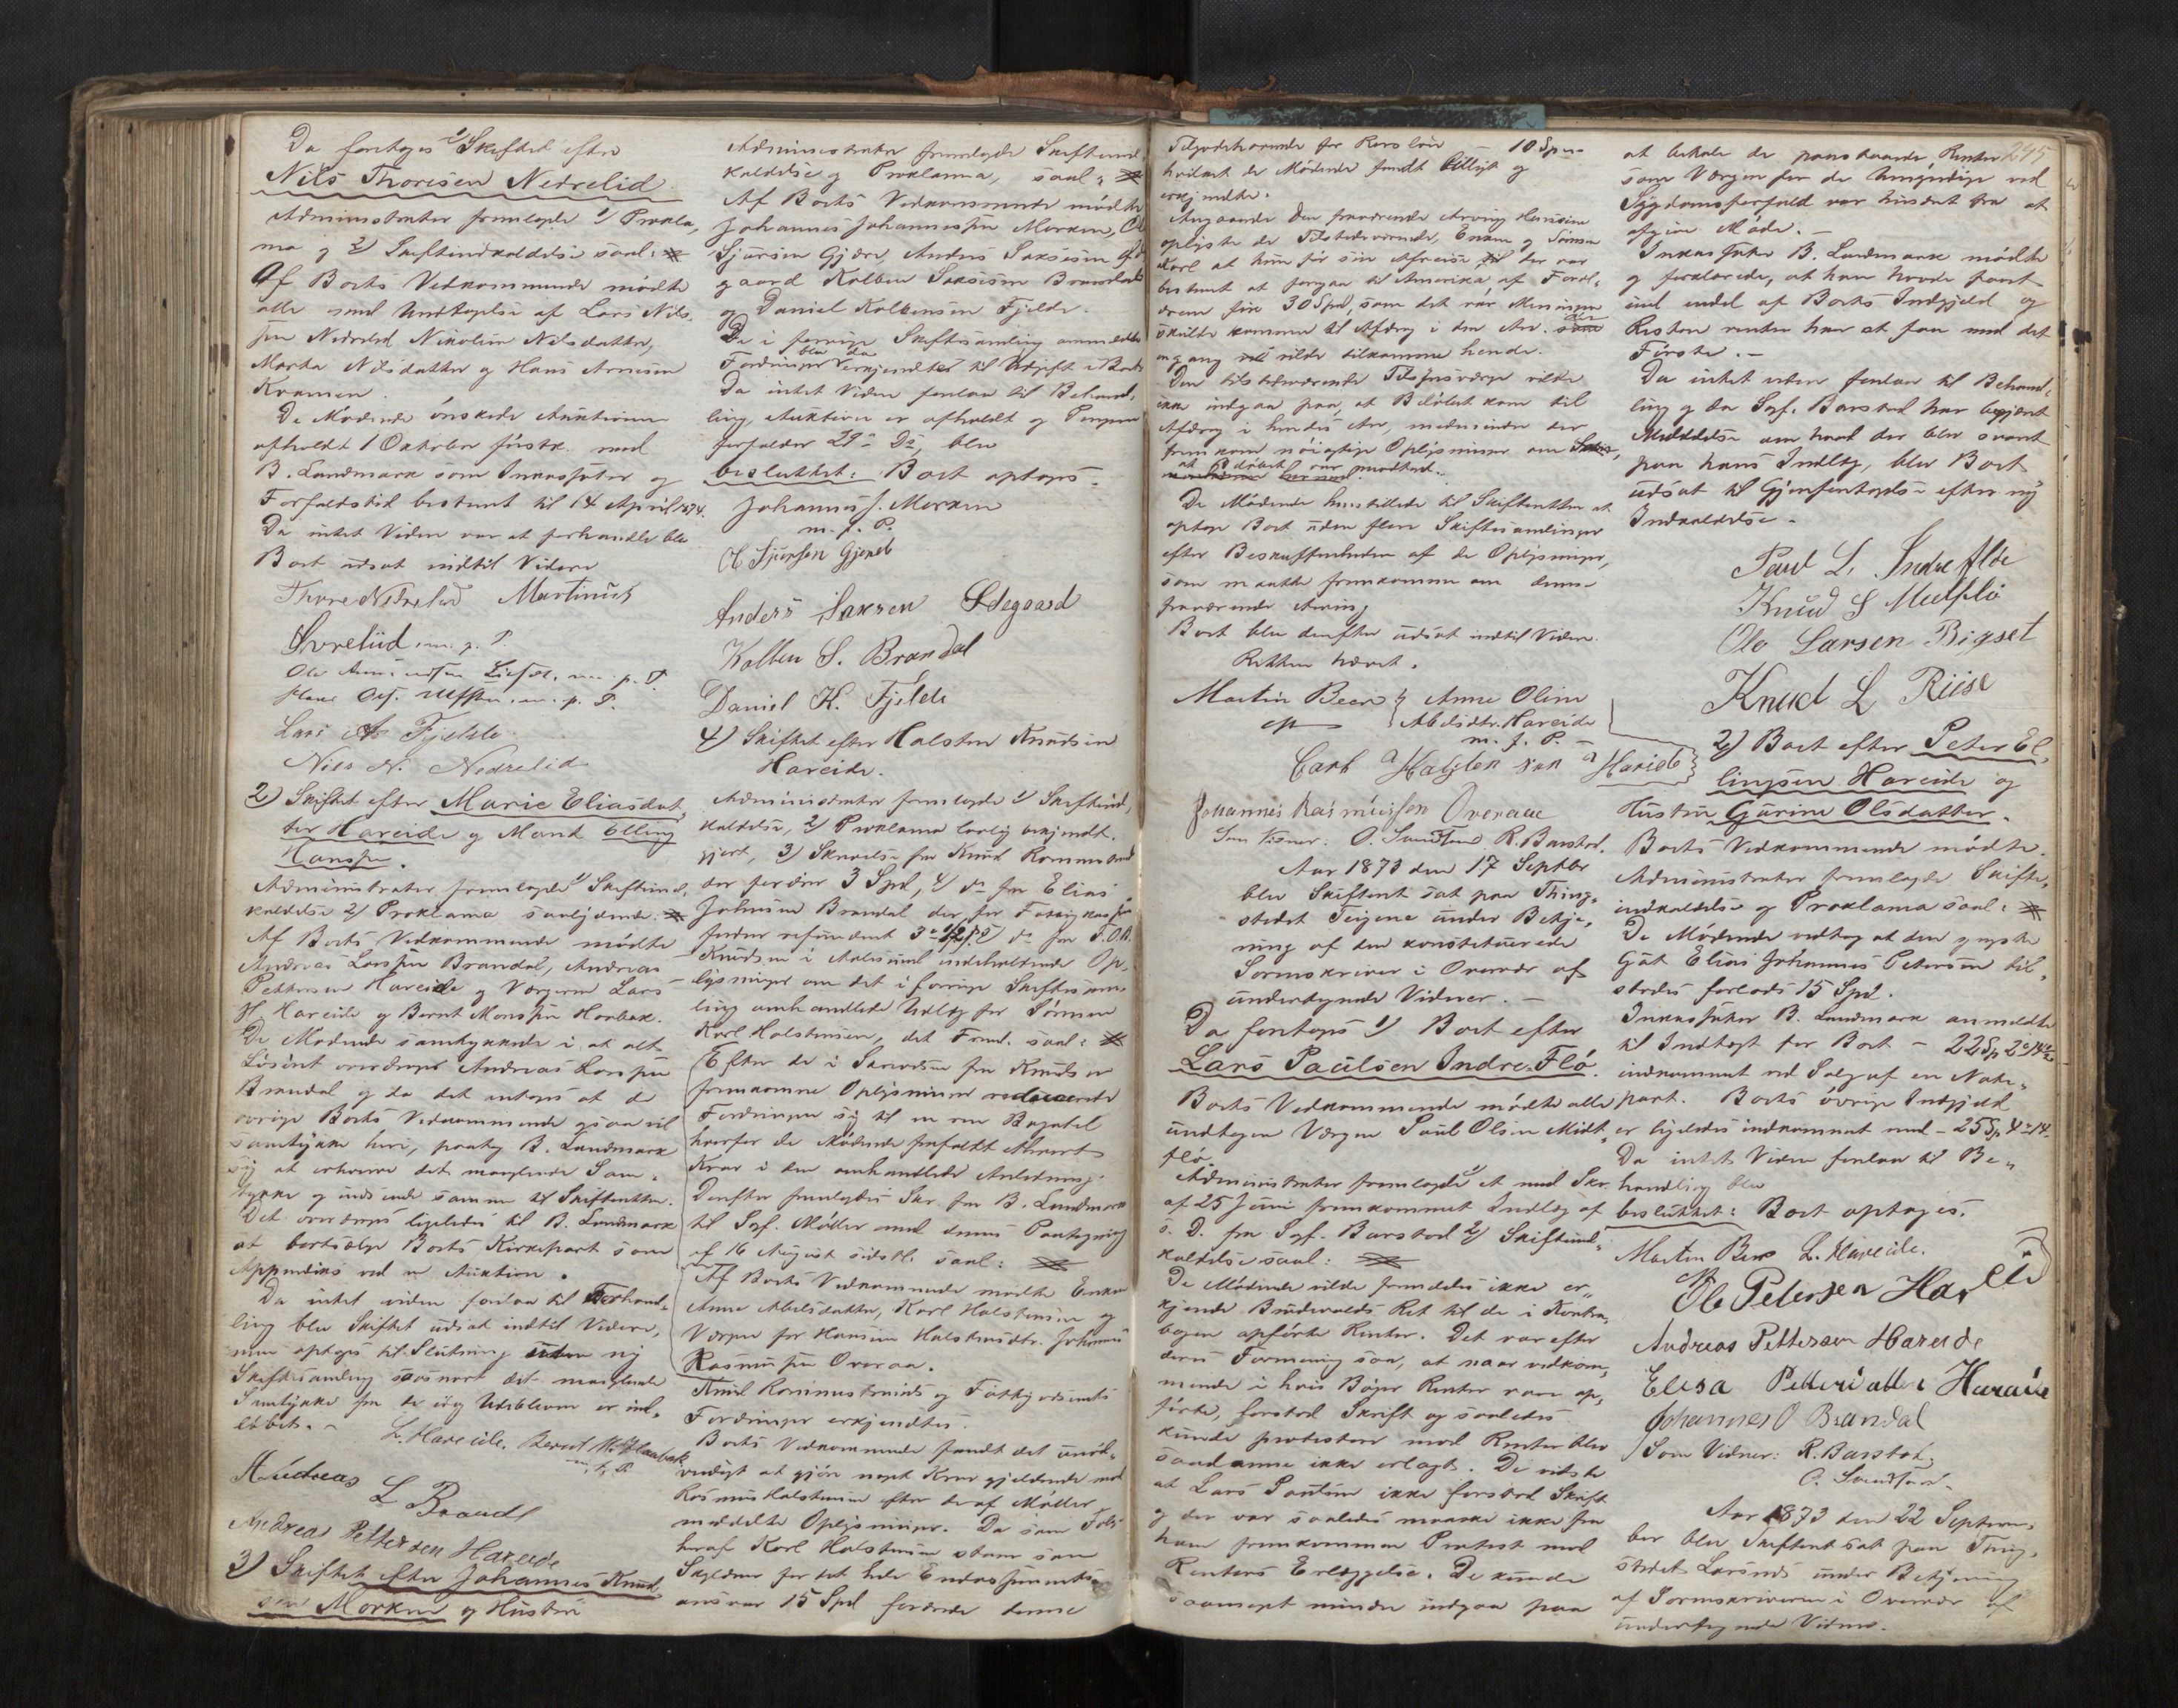 Da foretoges 1/ Skiftet efter
Nils Thoresen Nedrelid.
Administrator fremlagde 1/ Prokla„
ma og 2/ Skifteindkaldelse saal:
Af Boets Vedkommende mødte
alle med Undtagelse af Lars Nils„
sen Nedrelid Nikoline Nilsdatter,
Marta Nilsdatter og Hans Arnesen
De Mødende ønskede Auktionen
afholdt 1 Oktober førstk. med
B. Landmark som Inkassator og
Forfaldstid bestemt til 14 April 1874.
Da intet Videre var at forhandle blev
Boet udsat indtil Videre
Thore Nedrelid Martinus
m. p. P.
m. p. P.
m. p. P.
Lars A Fjelde
Nils N. Nedrelid
2) Skiftet efter Marie Eliasdat„
ter Hareide og Mand Elling
Hansen.
Administrator fremlagde 1/ Skifteind„
kaldelse 2/ Proklama saalydende:
Af Boets Vedkommende mødte
Andreas Larssen Brandal, Andreas
Pettersen Hareide og Værgerne Lars
H. Hareide og Bernt Monssen
De Mødende samtykkede i at alt
Løsøret overdroges Andreas Larssen
Brandal og da det antoges at de
øvrige Boets Vedkommende ogsaa vil
samtykke heri, paatog B. Landmark
sig at erhverve det manglende Sam„
tykke og indsende samme til Skifteretten.
Det overdroges ligeledes til B. Landmark
at bortsælge Boets Kirkepart som
Appendiks ved en Auktion.
Da intet videre forelaa til Forhand„
ling blev Skiftet udsat indtil Videre,
men optages til Slutning uden ny
Skiftesamling saasnart det manglende
Samtykke fra de Udeblevne er ind„
løbet. –
L. Hareide. Bernt M.
m. p. P.
Andreas L Brandl
Andreas Pettersen Hareide
3) Skiftet efter Johannes Knud
sen Morken og Hustru
Administrator fremlagde Skifteind
kaldelse og Proklama, saal:
Af Boets Vedkommende mødte
Johannes Johannessen Morken,
Sjursen Gjerde, Anders Saksesen Øde„
gaard Kolben Saksesen Brandal
og Daniel Kolbensen Fjelde.
De i forrige Skiftesamling anmeldte
Fordringer blev da erkjendte til Udgift i Boet
Da intet Videre forelaa til Behand„
ling, Auktion er afholdt og Pengene
forfalder 29de Ds, blev
besluttet: Boet optages.
Johannes J. Morken
m. f. P.
O Sjursen Gjerde
Anders Saksen Ødegaard
Kolben S. Brandal
Daniel K. Fjelde
4) Skiftet efter Halsten Knudsen
Hareide.
Administrator fremlagde 1/ Skifteind„
kaldelse, 2/ Proklama lovlig bekjendt„
gjort, 3) Skrivelse fra Knud
der fordrer 3 Spd, 4/ do fra Elias
Johnsen Brandal der for Fattigkassen
5) do fra P.O.A.
Knudsen i Aalesund indeholdende Op„
lysninger om det i forrige Skiftesam„
ling omhandlede Udlæg for Sønnen
Karl Halstensen, det Frml. saal:
Efter de i Skrivelsen fra Knudsen
fremkomne Oplysninger reducerede
Fordringen sig til en ren Bagatel
hvorfor de Mødende frafaldt ethvert
Krav i den omhandlede Anledning.
Derefter fremlagdes Skr. fra B. Landmark
til Sgf. Møller med dennes Paategning
af 16 August sidstl. saal:
Af Boets Vedkommende mødte Enken
Anne Abelsdatter, Karl Halstensen og
Værgen for Hansine Halstensdtr. Johannes
Rasmussen Overaa.
Fordringer erkjendtes.
Boets Vedkommende fandt det unød„
vendigt at gjøre noget Krav gjeldende mod
Rasmus Halstensen efter de af Møller
meddelte Oplysninger. Da som Følge
heraf Karl Halstensen staar som
Skyldner for det hele
ansvar 15 Spd fordrede denne
Tilgodehavende for Karsløn – 10 Spd
hvilket de Mødende fandt billigt og
erkjendte.
Angaaende den fraværende Arving Hansine
oplyste de Tilstedeværende, Enken og Sønnen
Karl at hun før sin Afreise til der var
bestemt at foregaa til Amerika, af Foræl„
drene fik 30 Spd, som det var Meningen
skulde komme til Afdrag i den Arv der
engang vilde tilkomme hende.
Den tilstedeværende Tilsynsværge vilde
ikke indgaa paa, at Beløbet kom til
Afdrag i hendes Arv, medmindre der
fremkom nøiagtige Oplysninger om
at Beløbet var modtaget.
De Mødende henstillede til Skifteretten at
optage Boet uden flere Skiftesamlinger
efter Beskaffenheden af de Oplysninger,
som maatte fremkomme om denne
fraværende Arving.
Boet blev derefter udsat indtil Videre.
Retten hævet.
Martin Beer Anne Oline
Abelsdtr. Hareide
m. f. P.
Carl Halsten sen Hareide
Johannes Rasmussen Overaae
Som Vidner: O. R. Barstad.
Aar 1873 den 17 Septbr
blev Skifteret sat paa Thing„
stedet Teigene under Betje„
ning af den konstituerede
Sorenskriver i Overvær af
undertegnede Vidner. –
Da foretoges 1/ Boet efter
Lars Paulsen Indre Flø.
Boets Vedkommende mødte alle
undtagen Værgen Paul Olsen Midt„
flø.
Administrator fremlagde 1/ et med Skr.
af 25 Juni fremkommet Indlæg af
s. D. fra Sgf. Barstad 2/ Skifteind„
kaldelse saal:
De Mødende vilde fremdeles ikke er„
kjende Buddevolds Ret til de i Kontra„
bogen opførte Renter. Det var efter
deres Formening saa, at naar vedkom„
mende i hvis Bøger Renter var op„
førte, forstod Skrift og saaledes
kunde protestere mod Renter blev
saadanne ikke erlagt. De vidste
at Lars Paulsen ikke forstod Skrift
og der var saaledes maaske ikke fra
ham fremkommen Protest mod
Renters Erlæggelse. De kunde
saameget mindre indgaa paa
245
at betale de paastaaede Renter
som Værgen for de Umyndige ved
Sygdomsforfald var hindret fra at
afgive Møde. –
Inkassator B. Landmark mødte
og forklarede, at han havde faaet
ind endel af Boets Indgjeld og
Resten venter han at faa med det
Første. –
Da intet videre forelaa til Behand„
ling og da Sgf. Barstad har begjært
Meddelelse om hvad der blev svaret
paa hans Indlæg, blev Boet
udsat til Gjenforetagelse efter ny
Indkaldelse.
Paul L. Indreflø
Knud S Mulflø
Ole Larsen Rigset
Knud L Riise
2) Boet efter Peter El„
lingsen Hareide og
Hustru Gurine Olsdatter.
Boets Vedkommende mødte.
Administrator fremlagde Skifte„
indkaldelse og Proklama saal:
De Mødende vedtog at den yngste
Gut Elias Johannes Petersen til„
stedes forlods 15 Spd.
Inkassator B. Landmark anmeldte
til Indtægt for Boet –
indkommet ved Salg af en Note„
part. Boets øvrige Indgjeld
er ligeledes indkommet med –
Da intet Videre forelaa til Be„
handling blev
besluttet: Boet optages.
Martin Beer L. Hareide.
Ole Petersen Hareide
Andreas Pettersen Hareide
Elesa Petteridatter Hareide
Johannes O Brandal
Som Vidner: R. Barstad,
Aar 1873 den 22 Septem„
ber blev Skifteret sat paa Thing„
stedet Larsnes under Betjening
af Sorenskriveren i Overvær af
undertegnede Vidner.